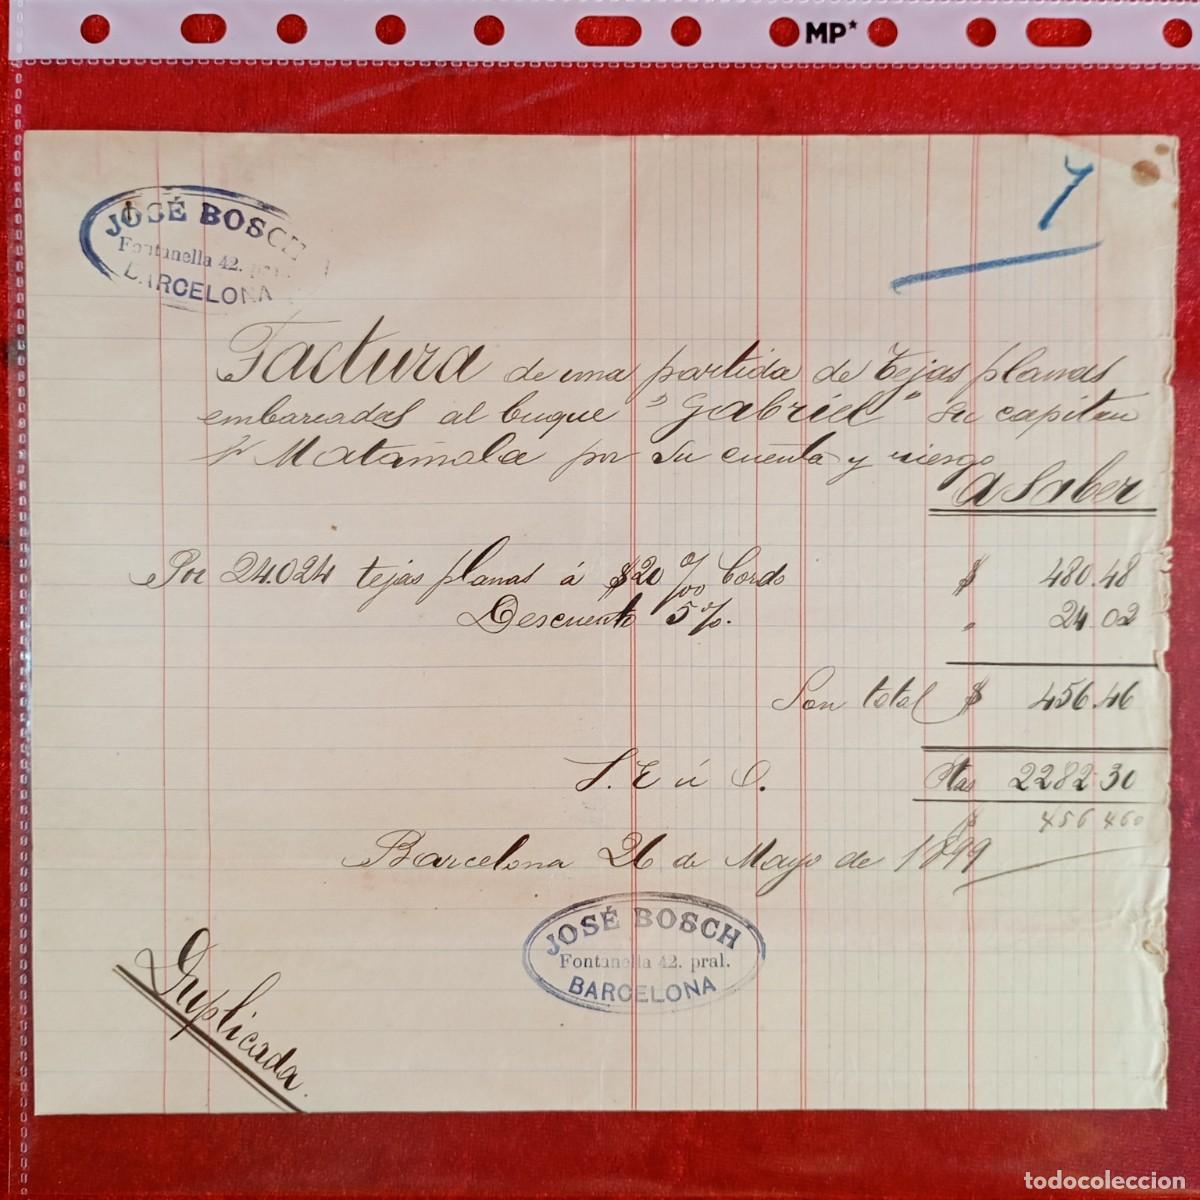 MP*
7
JOSÉ BOSCH
Fontanella 42. pral.
BARCELONA
Factura de una partida de tejas planas
embarcadas al buque "Gabriel" su capitan
Matamala por su cuenta y riesgo
A Saber
Por 24024 tejas planas á $20 % Bordo $ 480.48
Descuento 5%. " 24.02
Son total $ 456.46
S. E ú O. Ptas 2282.30
$ 456 460
Barcelona 26 de Mayo de 1899
JOSÉ BOSCH
Fontanella 42. pral.
BARCELONA
Duplicada
todocoleccion